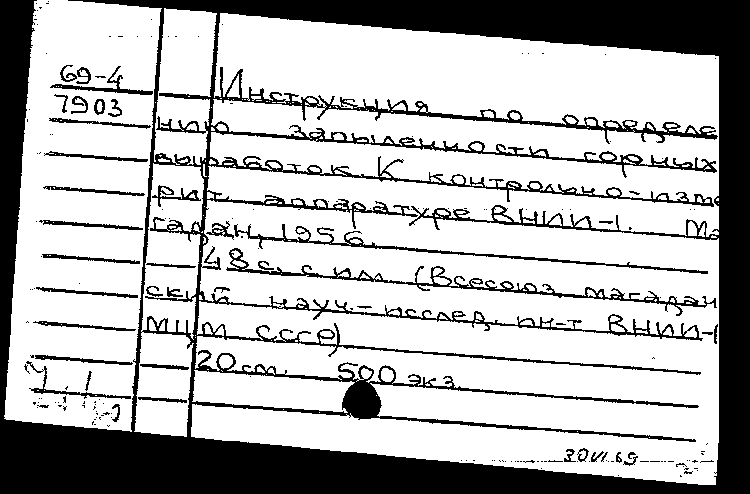 69-4
7903
Инструкция по определе
нию запыленности горных
выработок. К контрольно-изме
рит. аппаратуре ВНИИ-1. Ма
гадан, 1956.
48 с. с ил. (Всесоюз. магадан
ский науч.-исслед. ин-т ВНИИ-1
МЦМ СССР)
20 см. 500 экз.
30 VI 69